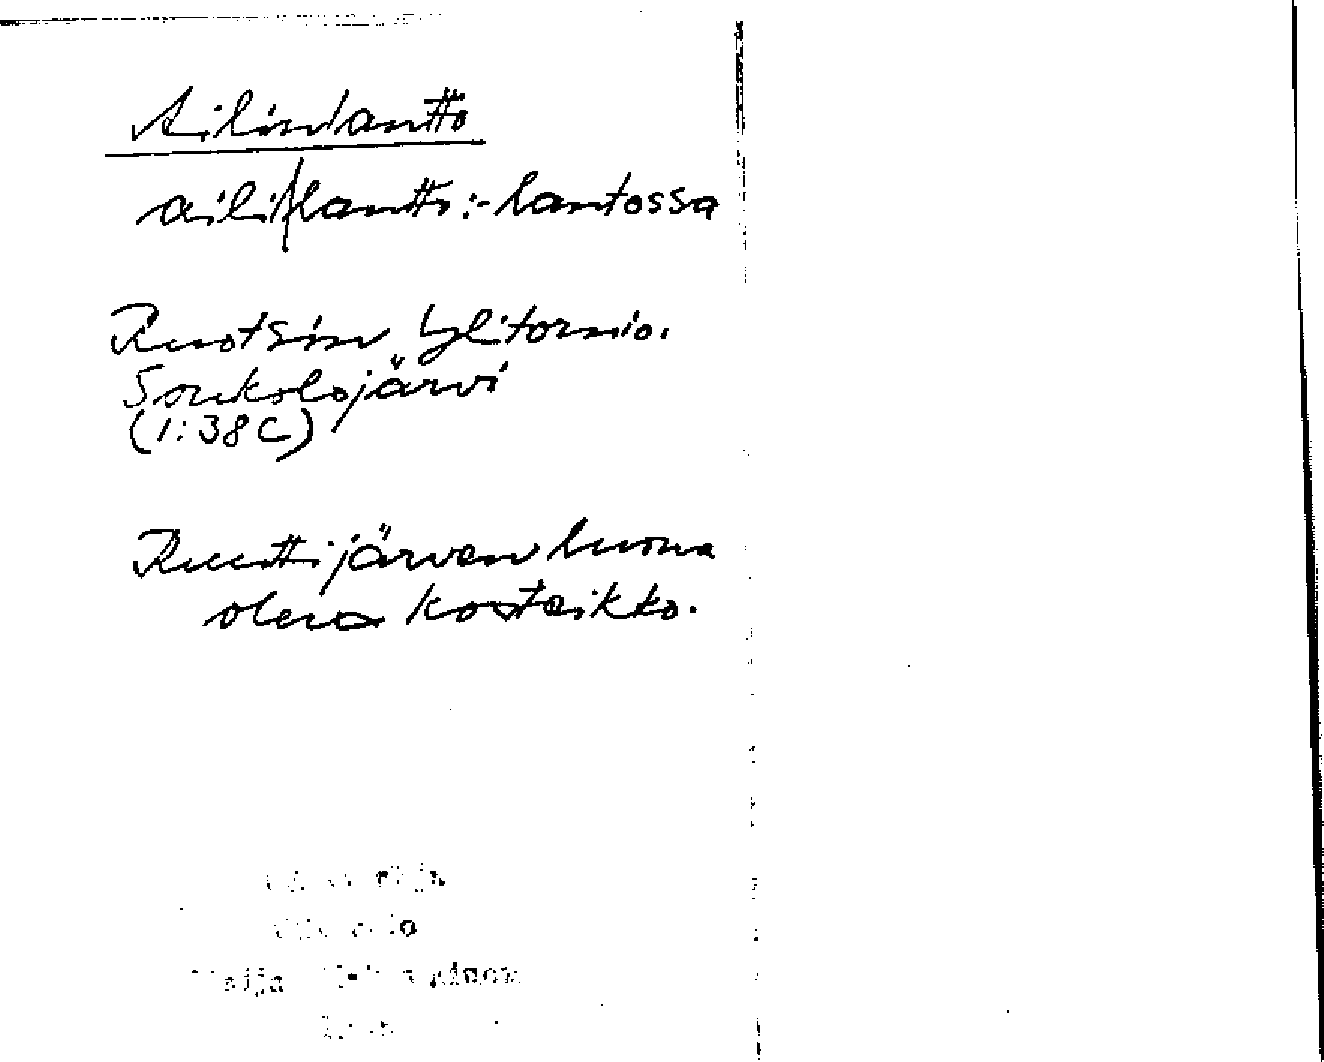 Ailinlantto
aili/lantto: -lantossa
Ruotsin Ylitornio.
Soukolojärvi
(1:38C)
Ruuttijärven luona
oleva kosteikko.